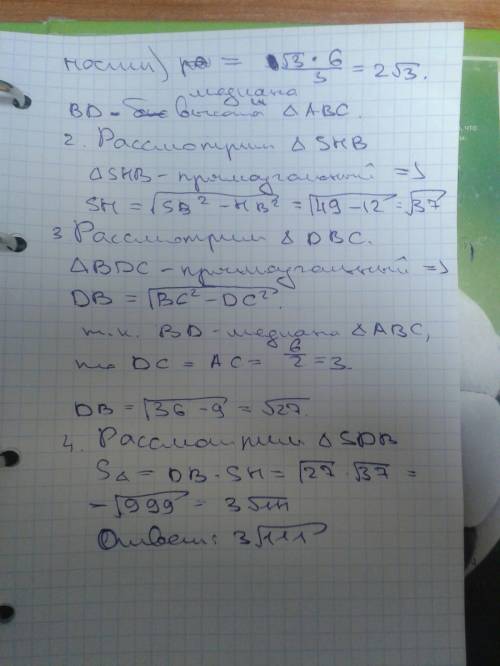 ности) = √3 · 6 / 3 = 2√3.
медиана и
BD - высота △ABC.
2. Рассмотрим △ SHB
△SHB - прямоугольный =>
SH = √SB² - HB² = √49 - 12 = √37
3 Рассмотрим △ DBC.
△BDC - прямоугольный =>
DB = √BC² - DC².
т.к. BD - медиана △ABC,
то DC = AC = 6/2 = 3.
DB = √36 - 9 = √27.
4. Рассмотрим △SDB
S△ = DB · SH = √27 · √37 =
= √999 = 3√111
Ответ: 3√111